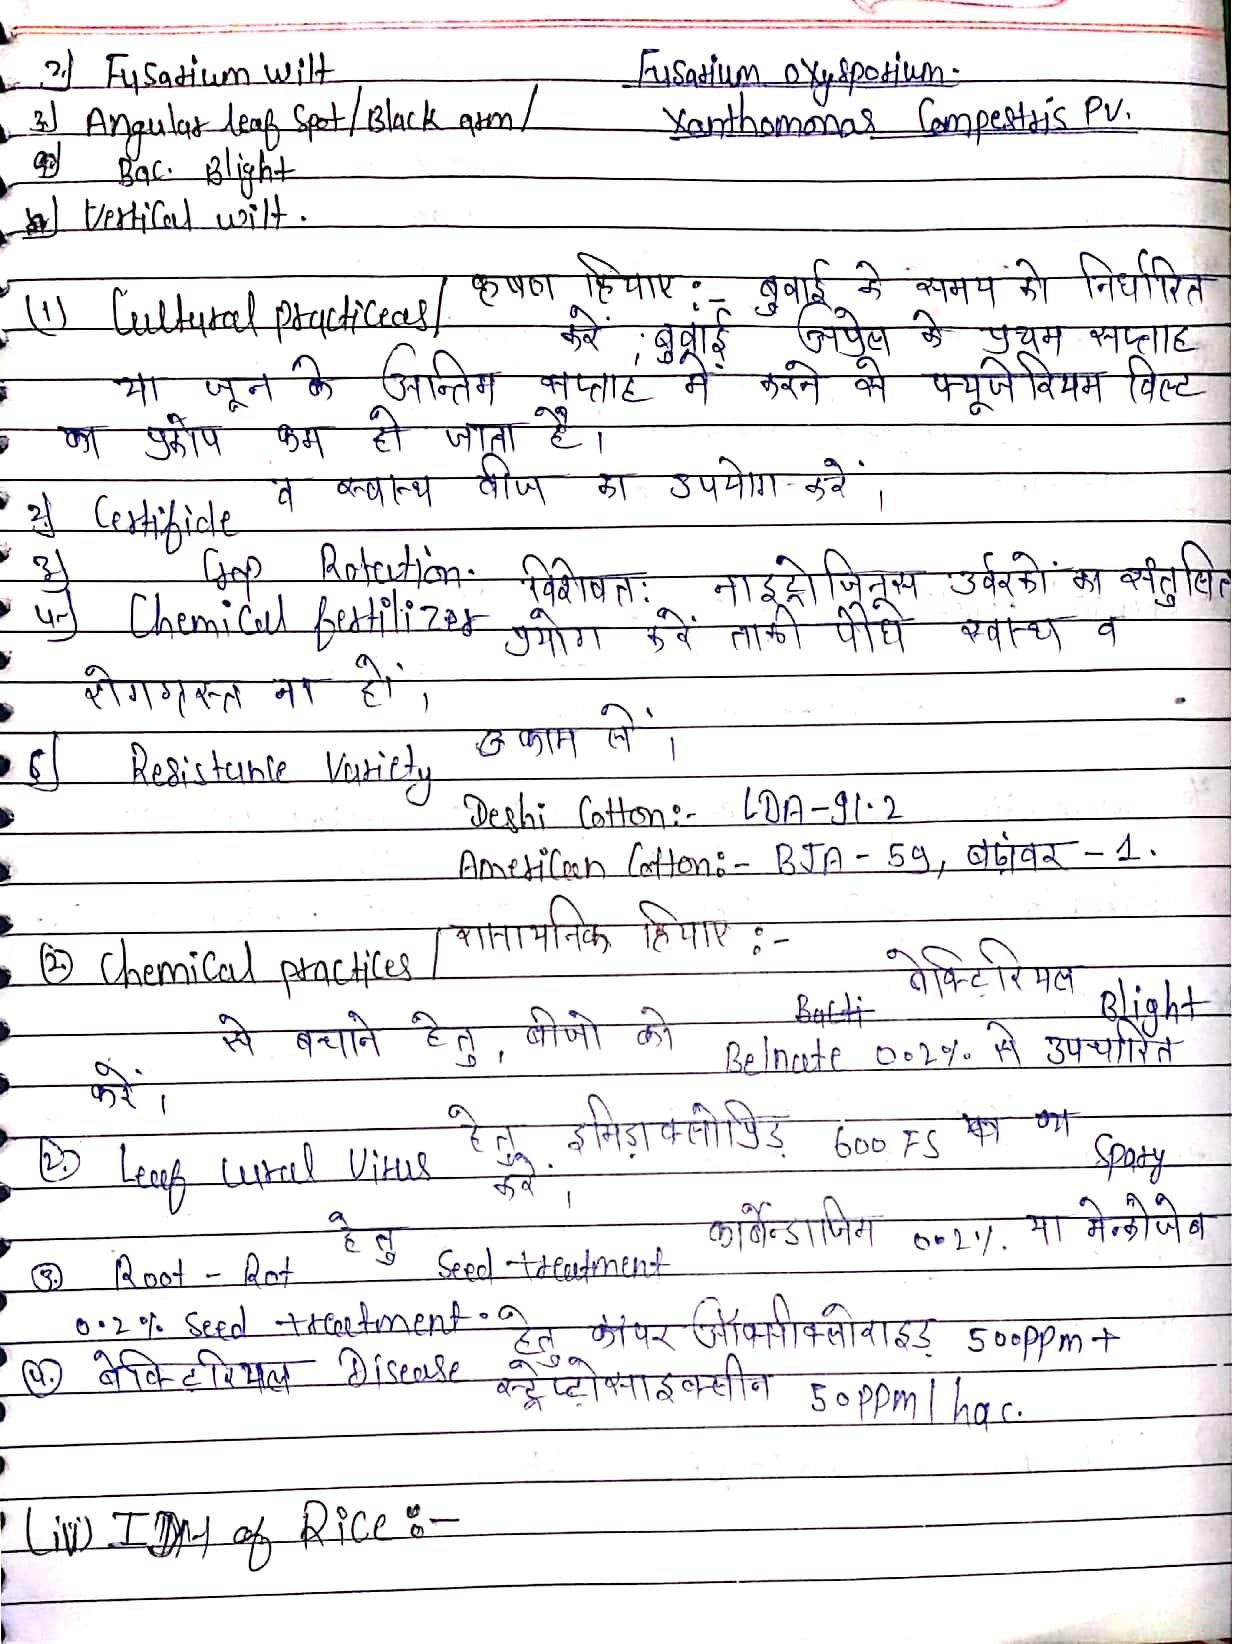 2.) Fusarium wilt Fusarium oxysporium.
3) Angular leaf spot/Black arm/ Xanthomonas Compestris PV.
Bac. Blight
Vertical wilt.
(1) Cultural practiceas/ कृषण क्रियाए :- बुवाई के समय को निर्धारित
करें , बुवाई अप्रेल के प्रथम सप्ताह
या जून के अन्तिम सप्ताह में करने से फ्यूजेरियम विल्ट
का प्रकोप कम हो जाता है।
2) Certifide व स्वास्थ बीज का उपयोग करें ,
3) Crop Rotection.
4) Chemical fertilizer विशेषतः नाइट्रोजिनस उर्वरकों का संतुलित
प्रयोग करें ताकी पौधे स्वास्थ व
रोगग्रस्त ना हों ,
5) Resistance Variety काम लें ।
Deshi Cotton:- LDA-91.2
American Cotton:- BJA - 59, - 1.
(2.) Chemical practices / रासायनिक क्रियाए :-
Bacti बेक्टिरियल Blight
से बचाने हेतु , बीजो को Belncete 0.2% से उपचारित
करें ।
(2.) Leaf cural Virus हेतु इमिड़ाक्लोप्रिड़ 600 FS का Spary
करें ।
(3.) Root - Rot हेतु Seed-treatment कार्बेन्डाजिम 0.2%. या मेन्कोजेब
0.2% Seed treatment.
(4.) बेक्टिरियल Disease हेतु कॉपर ऑक्सीक्लोराइड़ 500ppm +
स्ट्रेप्टोसाइक्लीन 50ppm/hac.
(iv) IDM of Rice :-